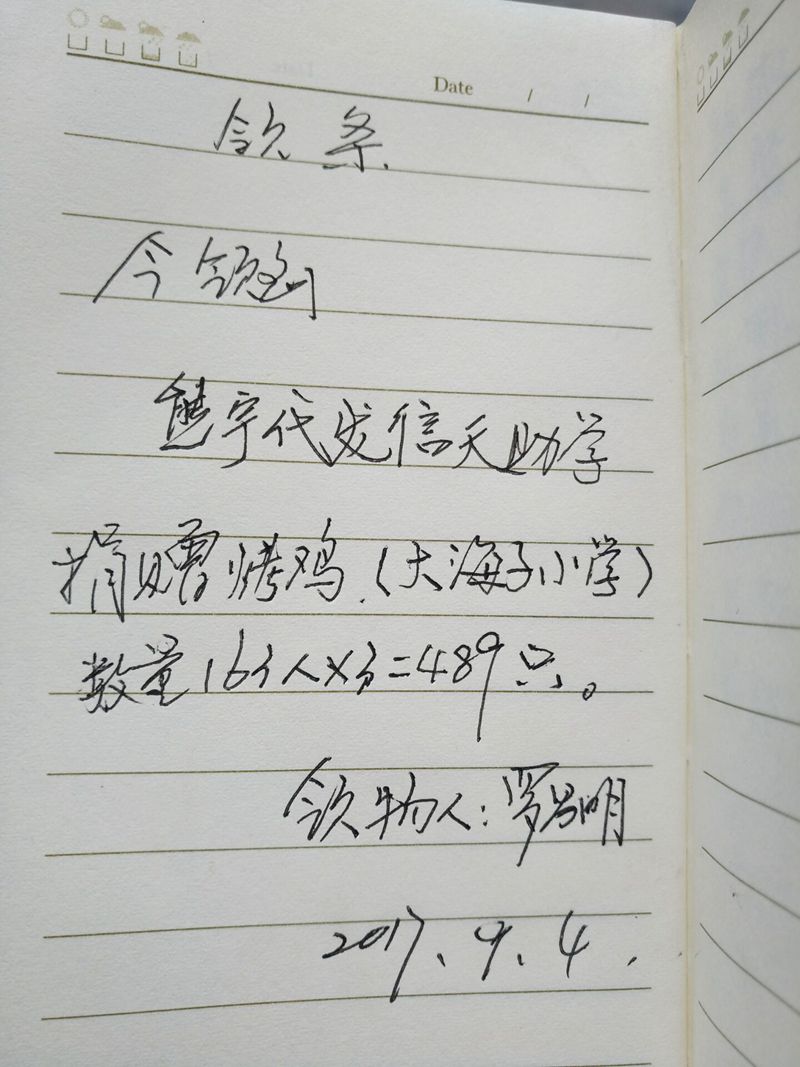 Date / /
领条
今领到
熊宇代发信天助学
捐赠烤鸡（大海子小学）
数量163人×3=489只。
领物人：罗昌明
2017.9.4.